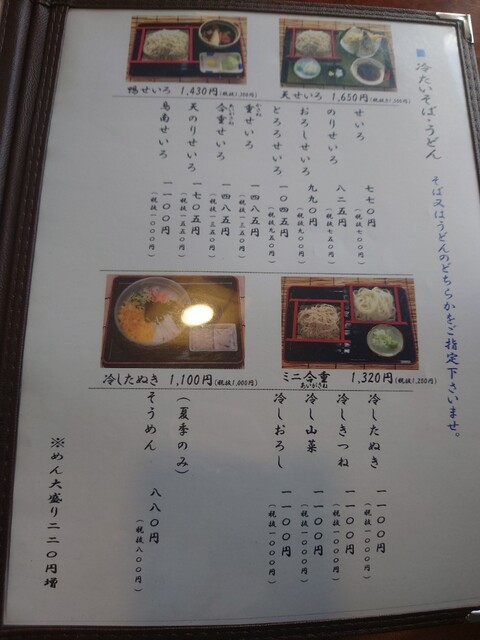 冷たいそば・うどん
そば又はうどんのどちらかをご指定下さいませ。
鴨せいろ 1,430円(税抜1,300円)
天せいろ 1,650円(税抜1,500円)
せいろ 七七〇円(税抜七〇〇円)
のりせいろ 八二五円(税抜七五〇円)
おろしせいろ 九九〇円(税抜九〇〇円)
とろろせいろ 一〇四五円(税抜九五〇円)
重せいろ 一四八五円(税抜一三五〇円)
合重せいろ 一四八五円(税抜一三五〇円)
あいがさね
天のりせいろ 一七〇五円(税抜一五五〇円)
鳥南せいろ 一一〇〇円(税抜一〇〇〇円)
冷したぬき 1,100円(税抜1,000円)
ミニ合重 1,320円(税抜1,200円)
あいがさね
冷したぬき 一一〇〇円(税抜一〇〇〇円)
冷しきつね 一一〇〇円(税抜一〇〇〇円)
冷し山菜 一一〇〇円(税抜一〇〇〇円)
冷しおろし 一一〇〇円(税抜一〇〇〇円)
(夏季のみ)
そうめん 八八〇円(税抜八〇〇円)
※めん大盛り二二〇円増